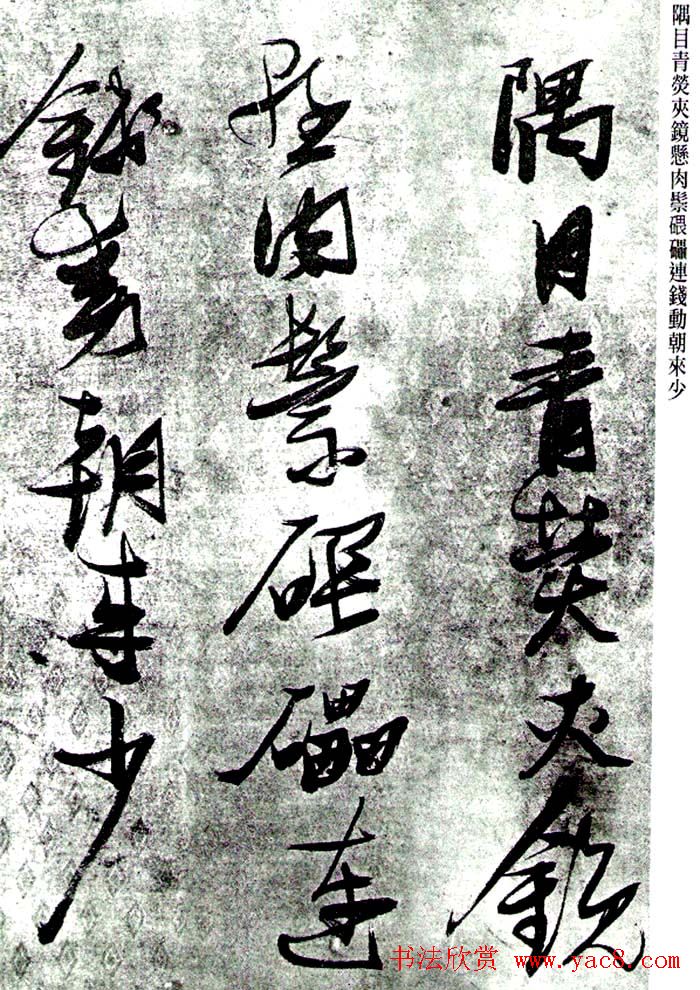 隅目青熒夾鏡懸肉鬃碨礧連錢動朝來少
隅目青熒夾鏡
懸肉鬃碨礧連
錢動朝來少
书法欣赏 www.yac8.com